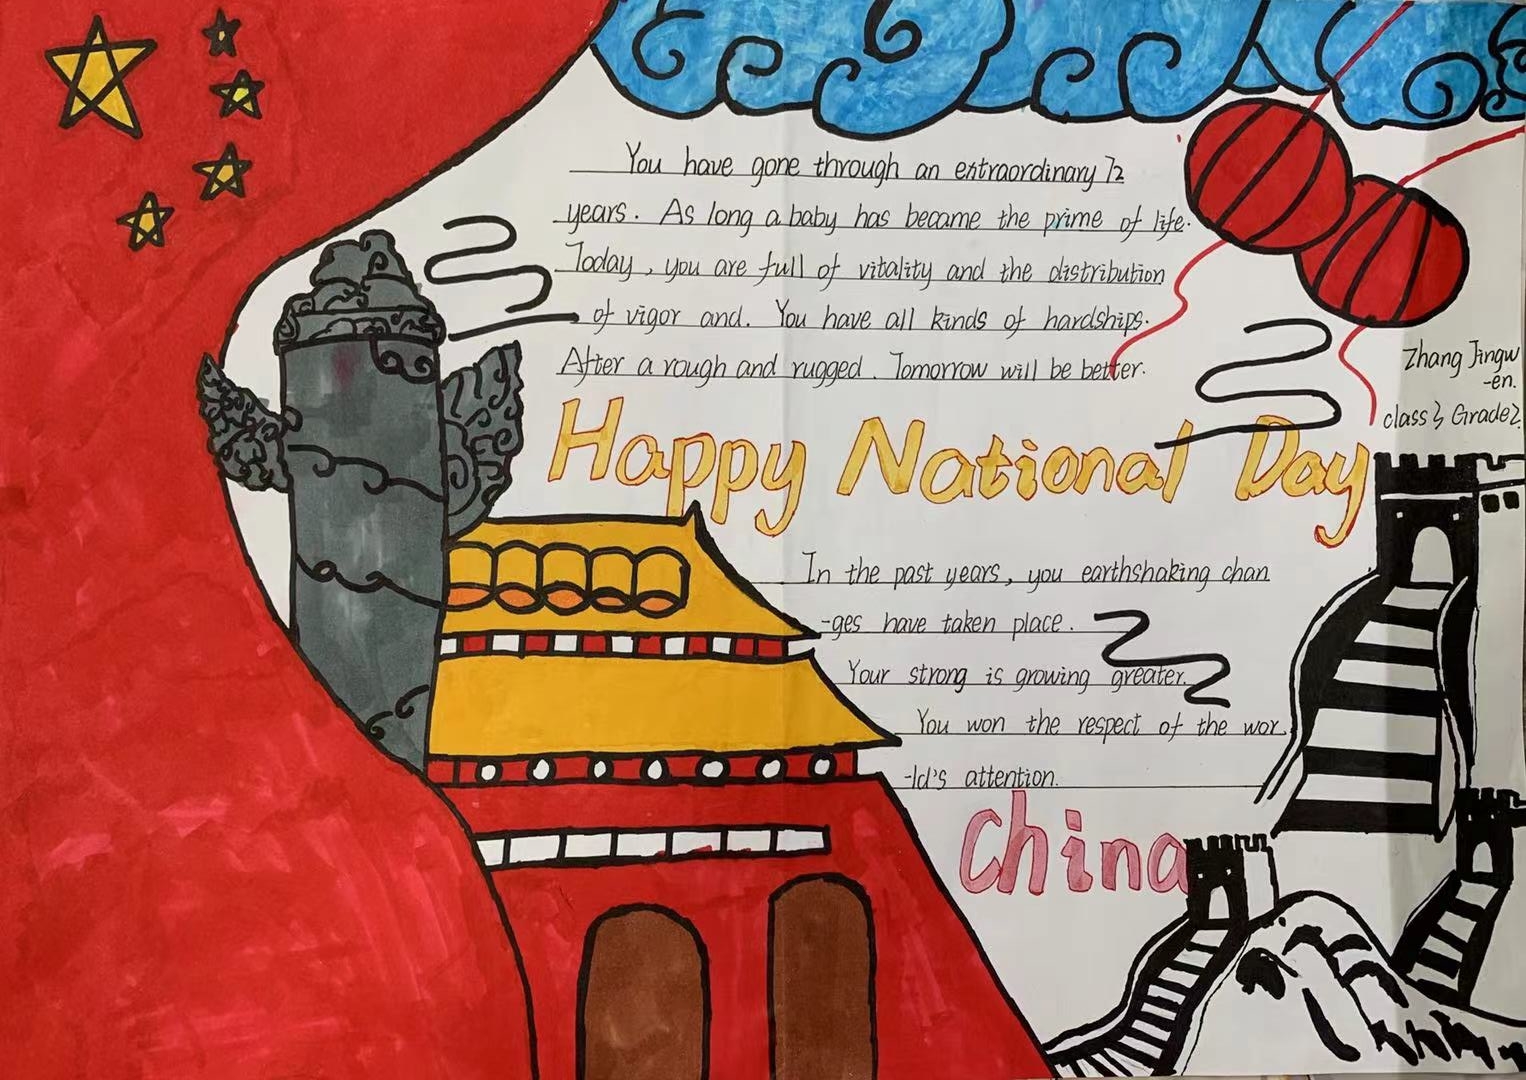 You have gone through an extraordinary 72
years. As long a baby has became the prime of life.
Today, you are full of vitality and the distribution
of vigor and. You have all kinds of hardships.
After a rough and rugged. Tomorrow will be better.
Zhang Jingw
-en.
class 3 Grade 2.
Happy National Day
In the past years, you earthshaking chan
-ges have taken place.
Your strong is growing greater.
You won the respect of the wor
-ld's attention.
China